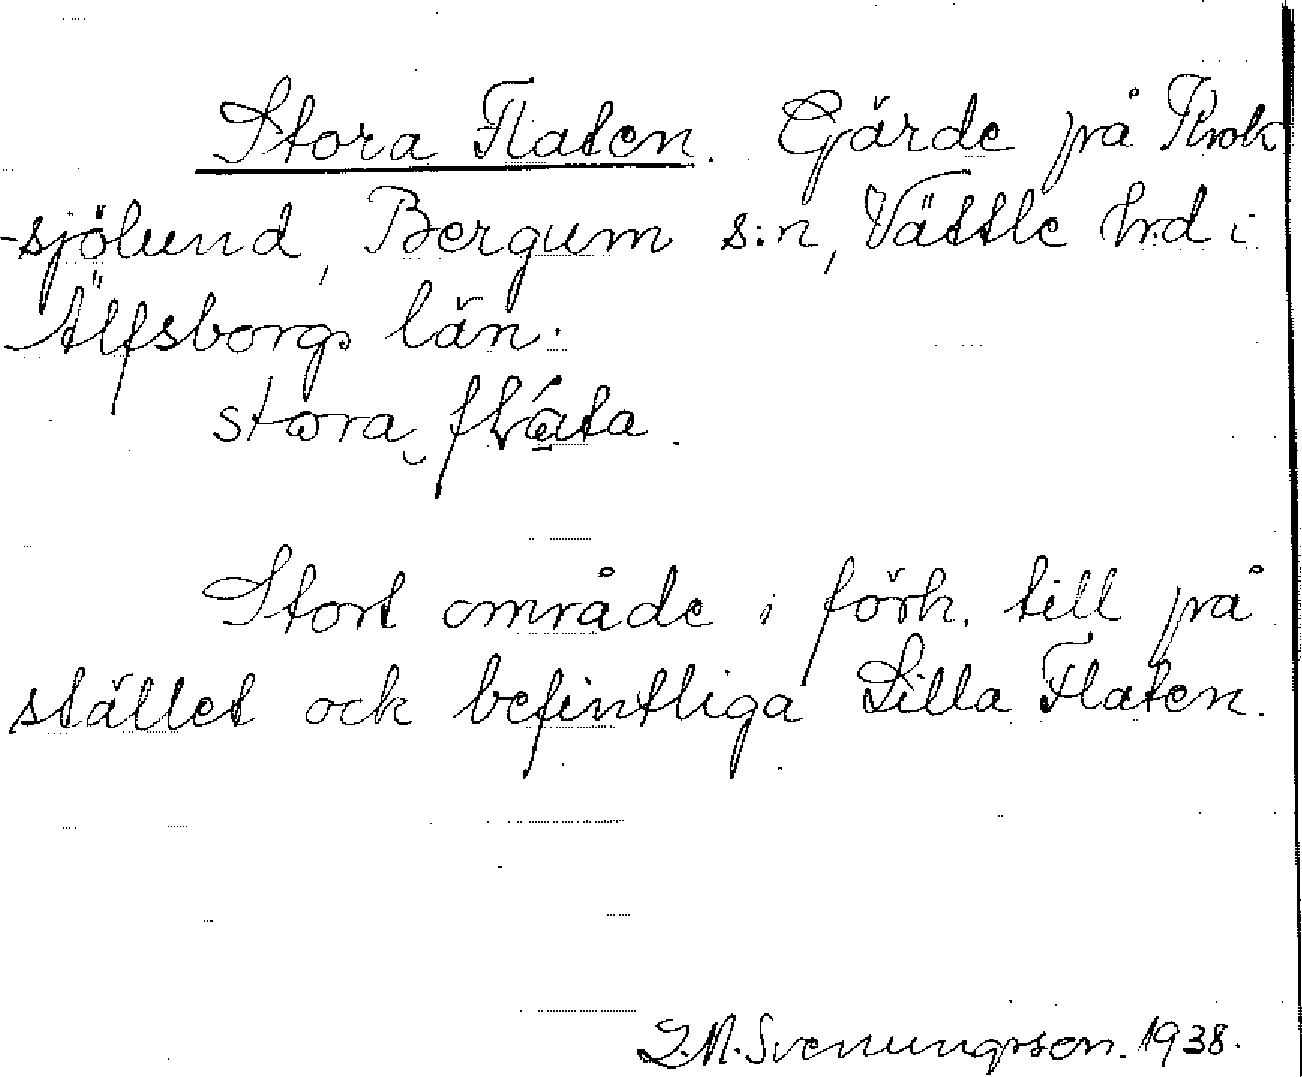 Stora Flaten. Gärde på Krok
-sjölund, Bergum s:n, Vättle hrd i
Älfsborgs län.
stora
Stort område i förh. till på
stället ock befintliga Lilla Flaten.
Svenungsson. 1938.